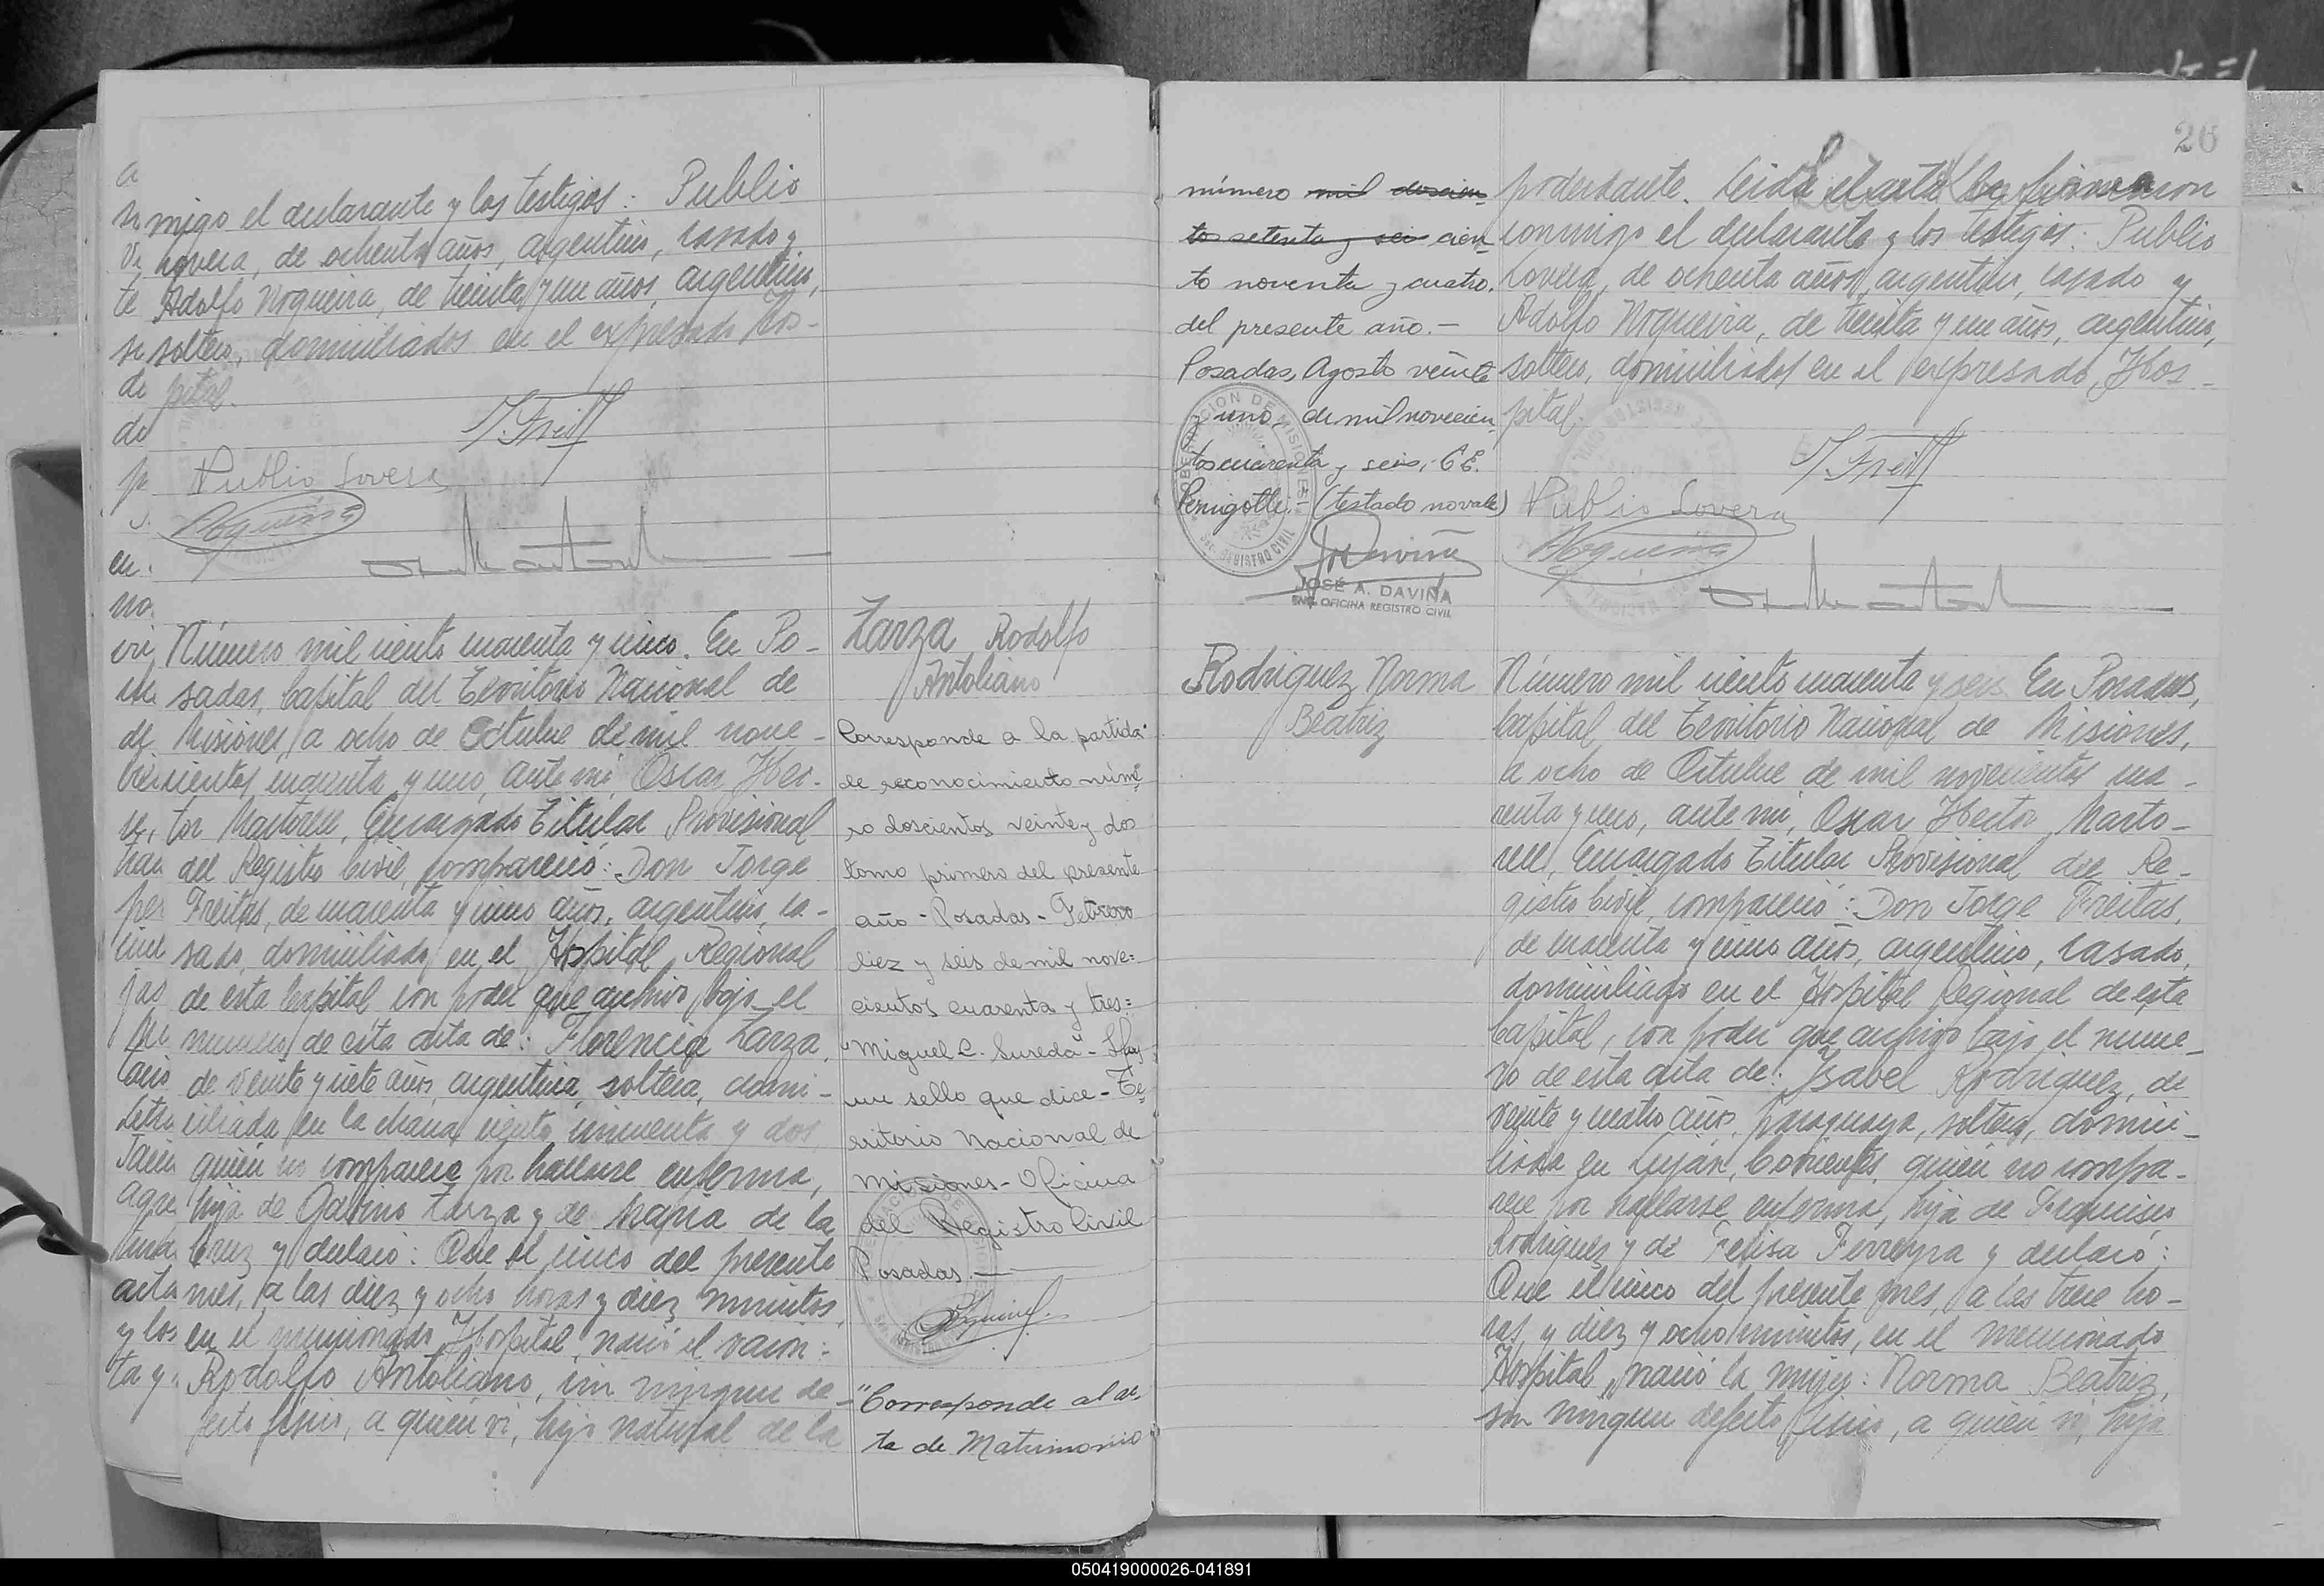 migo el declarante y los testigos: Publio
Lovera, de ochenta años, argentino, casado y
Adolfo Nogueira, de treinta y un años, argentino,
soltero, domiciliados en el expresado Hos-
pital.
Publio Lovera
Nogueira
Número mil ciento cuarenta y cinco. En Po-
sadas, Capital del Territorio Nacional de
Misiones, a ocho de Octubre de mil nove-
cientos cuarenta y uno, ante mí, Oscar Héc-
tor Martorell, Encargado Titular Provisional
del Registro Civil, compareció: Don Jorge
Freitas, de cuarenta y cinco años, argentino, ca-
sado, domiciliado en el Hospital Regional
de esta Capital, con poder que archivo bajo el
número de esta acta de: Florencia Zarza,
de veinte y siete años, argentina, soltera, domi-
ciliada en la chacra ciento cincuenta y dos,
quién no comparece por hallarse enferma,
hija de Zarza y de María de la
Cruz y declaró: Que el cinco del presente
mes, a las diez y ocho horas y diez minutos,
en el mencionado Hospital, nació el varón:
Rodolfo Antoliano, sin ningun de-
fecto físico, a quién ví, hijo natural de la
Zarza Rodolfo
Antoliano
Corresponde a la partida
de reconocimiento núme
ro doscientos veinte y dos
tomo primero del presente
año - Posadas - Febrero
diez y seis de mil nove=
cientos cuarenta y tres=
"Miguel C. Sureda" - Hay
un sello que dice - Te=
rritorio Nacional de
Misiones - Oficina
del Registro Civil
Posadas. —
"Corresponde al ac
ta de Matrimonio
26
número mil doscien
tos setenta y seis cien
to noventa y cuatro.
del presente año. -
Posadas, Agosto veinte
y uno de mil novecien
tos cuarenta y seis, C E.
Penigotti. - (testado no vale)
JOSÉ A. DAVIÑA
ENC. OFICINA REGISTRO CIVIL
Rodriguez Norma
Beatriz
poderdante. Leída el acta la firmaron
conmigo el declarante y los testigos: Publio
Lovera, de ochenta años, argentino, casado y
Adolfo Nogueira, de treinta y un años, argentino,
soltero, domiciliados en el expresado Hos-
pital.
Publio Lovera
Nogueira
Número mil ciento cuarenta y seis. En Posadas,
Capital del Territorio Nacional de Misiones,
a ocho de Octubre de mil novecientos cua-
renta y uno, ante mí, Oscar Héctor Marto-
rell, Encargado Titular Provisional del Re-
gistro Civil, compareció: Don Jorge Freitas,
de cuarenta y cinco años, argentino, casado,
domiciliado en el Hospital Regional de esta
Capital, con poder que archivo bajo el núme-
ro de esta acta de: Isabel Rodriguez, de
veinte y cuatro años, paraguaya, soltera, domici-
liada en Luján, Corrientes, quién no compa-
rece por hallarse enferma, hija de Francisco
Rodriguez y de Felisa Ferreyra y declaró:
Que el cinco del presente mes, a las trece ho-
ras y diez y ocho minutos, en el mencionado
Hospital, nació la mujer: Norma Beatriz,
sin ningun defecto físico, a quién ví, hija
050419000026-041891